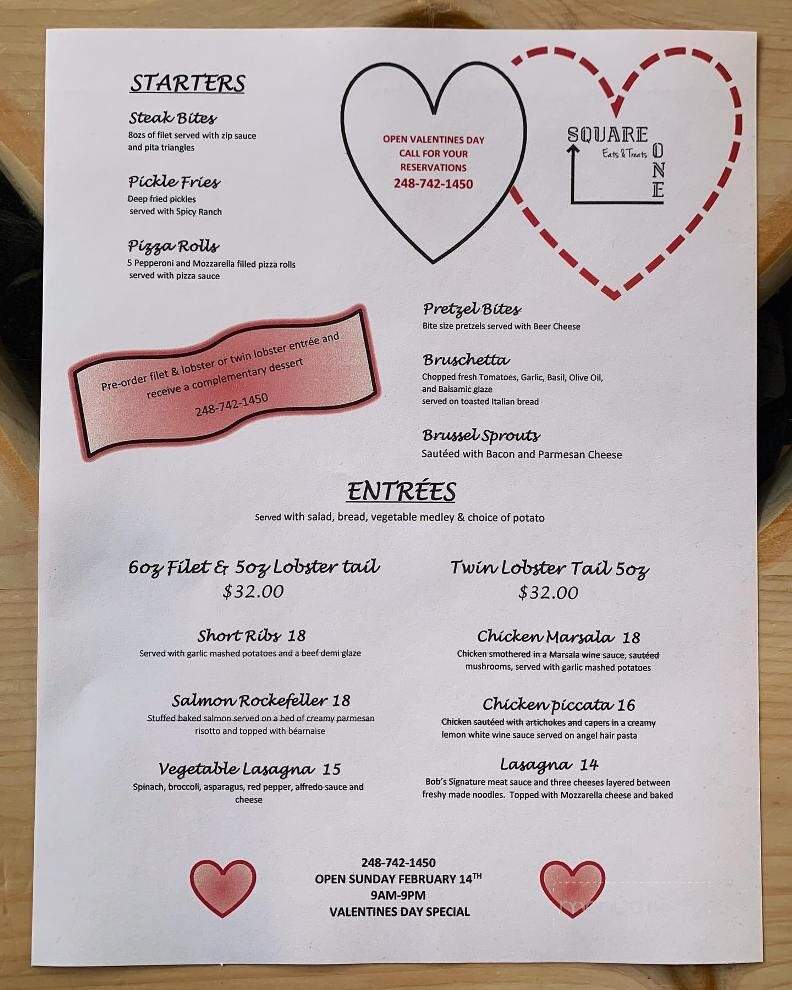 STARTERS
Steak Bites
8ozs of filet served with zip sauce
and pita triangles
Pickle Fries
Deep fried pickles
served with Spicy Ranch
Pizza Rolls
5 Pepperoni and Mozzarella filled pizza rolls
served with pizza sauce
OPEN VALENTINES DAY
CALL FOR YOUR
RESERVATIONS
248-742-1450
SQUARE
ONE
Eats & Treats
Pre-order filet & lobster or twin lobster entrée and
receive a complementary dessert
248-742-1450
Pretzel Bites
Bite size pretzels served with Beer Cheese
Bruschetta
Chopped fresh Tomatoes, Garlic, Basil, Olive Oil,
and Balsamic glaze
served on toasted Italian bread
Brussel Sprouts
Sautéed with Bacon and Parmesan Cheese
ENTRÉES
Served with salad, bread, vegetable medley & choice of potato
6oz Filet & 5oz Lobster tail
$32.00
Twin Lobster Tail 5oz
$32.00
Short Ribs 18
Served with garlic mashed potatoes and a beef demi glaze
Chicken Marsala 18
Chicken smothered in a Marsala wine sauce, sautéed
mushrooms, served with garlic mashed potatoes
Salmon Rockefeller 18
Stuffed baked salmon served on a bed of creamy parmesan
risotto and topped with béarnaise
Chicken piccata 16
Chicken sautéed with artichokes and capers in a creamy
lemon white wine sauce served on angel hair pasta
Vegetable Lasagna 15
Spinach, broccoli, asparagus, red pepper, alfredo sauce and
cheese
Lasagna 14
Bob's Signature meat sauce and three cheeses layered between
freshy made noodles. Topped with Mozzarella cheese and baked
248-742-1450
OPEN SUNDAY FEBRUARY 14TH
9AM-9PM
VALENTINES DAY SPECIAL